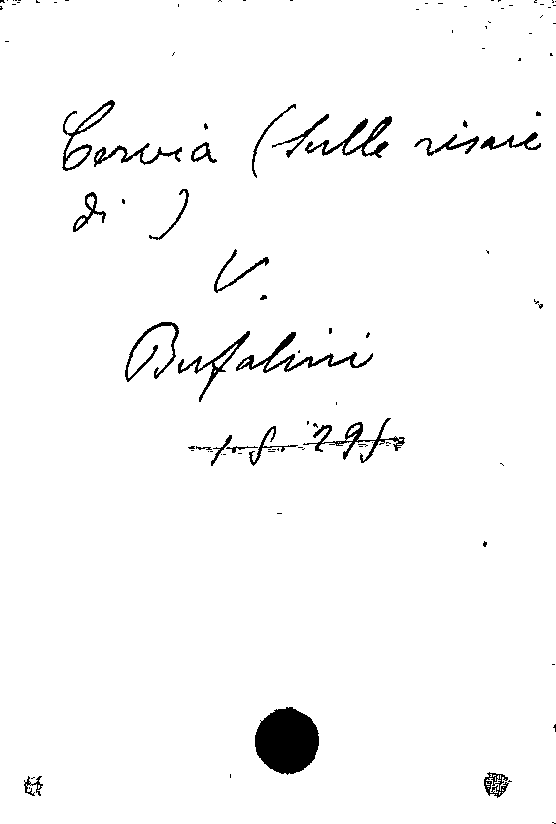 Cervia (Sulle risaie
di )
V.
Bufalini